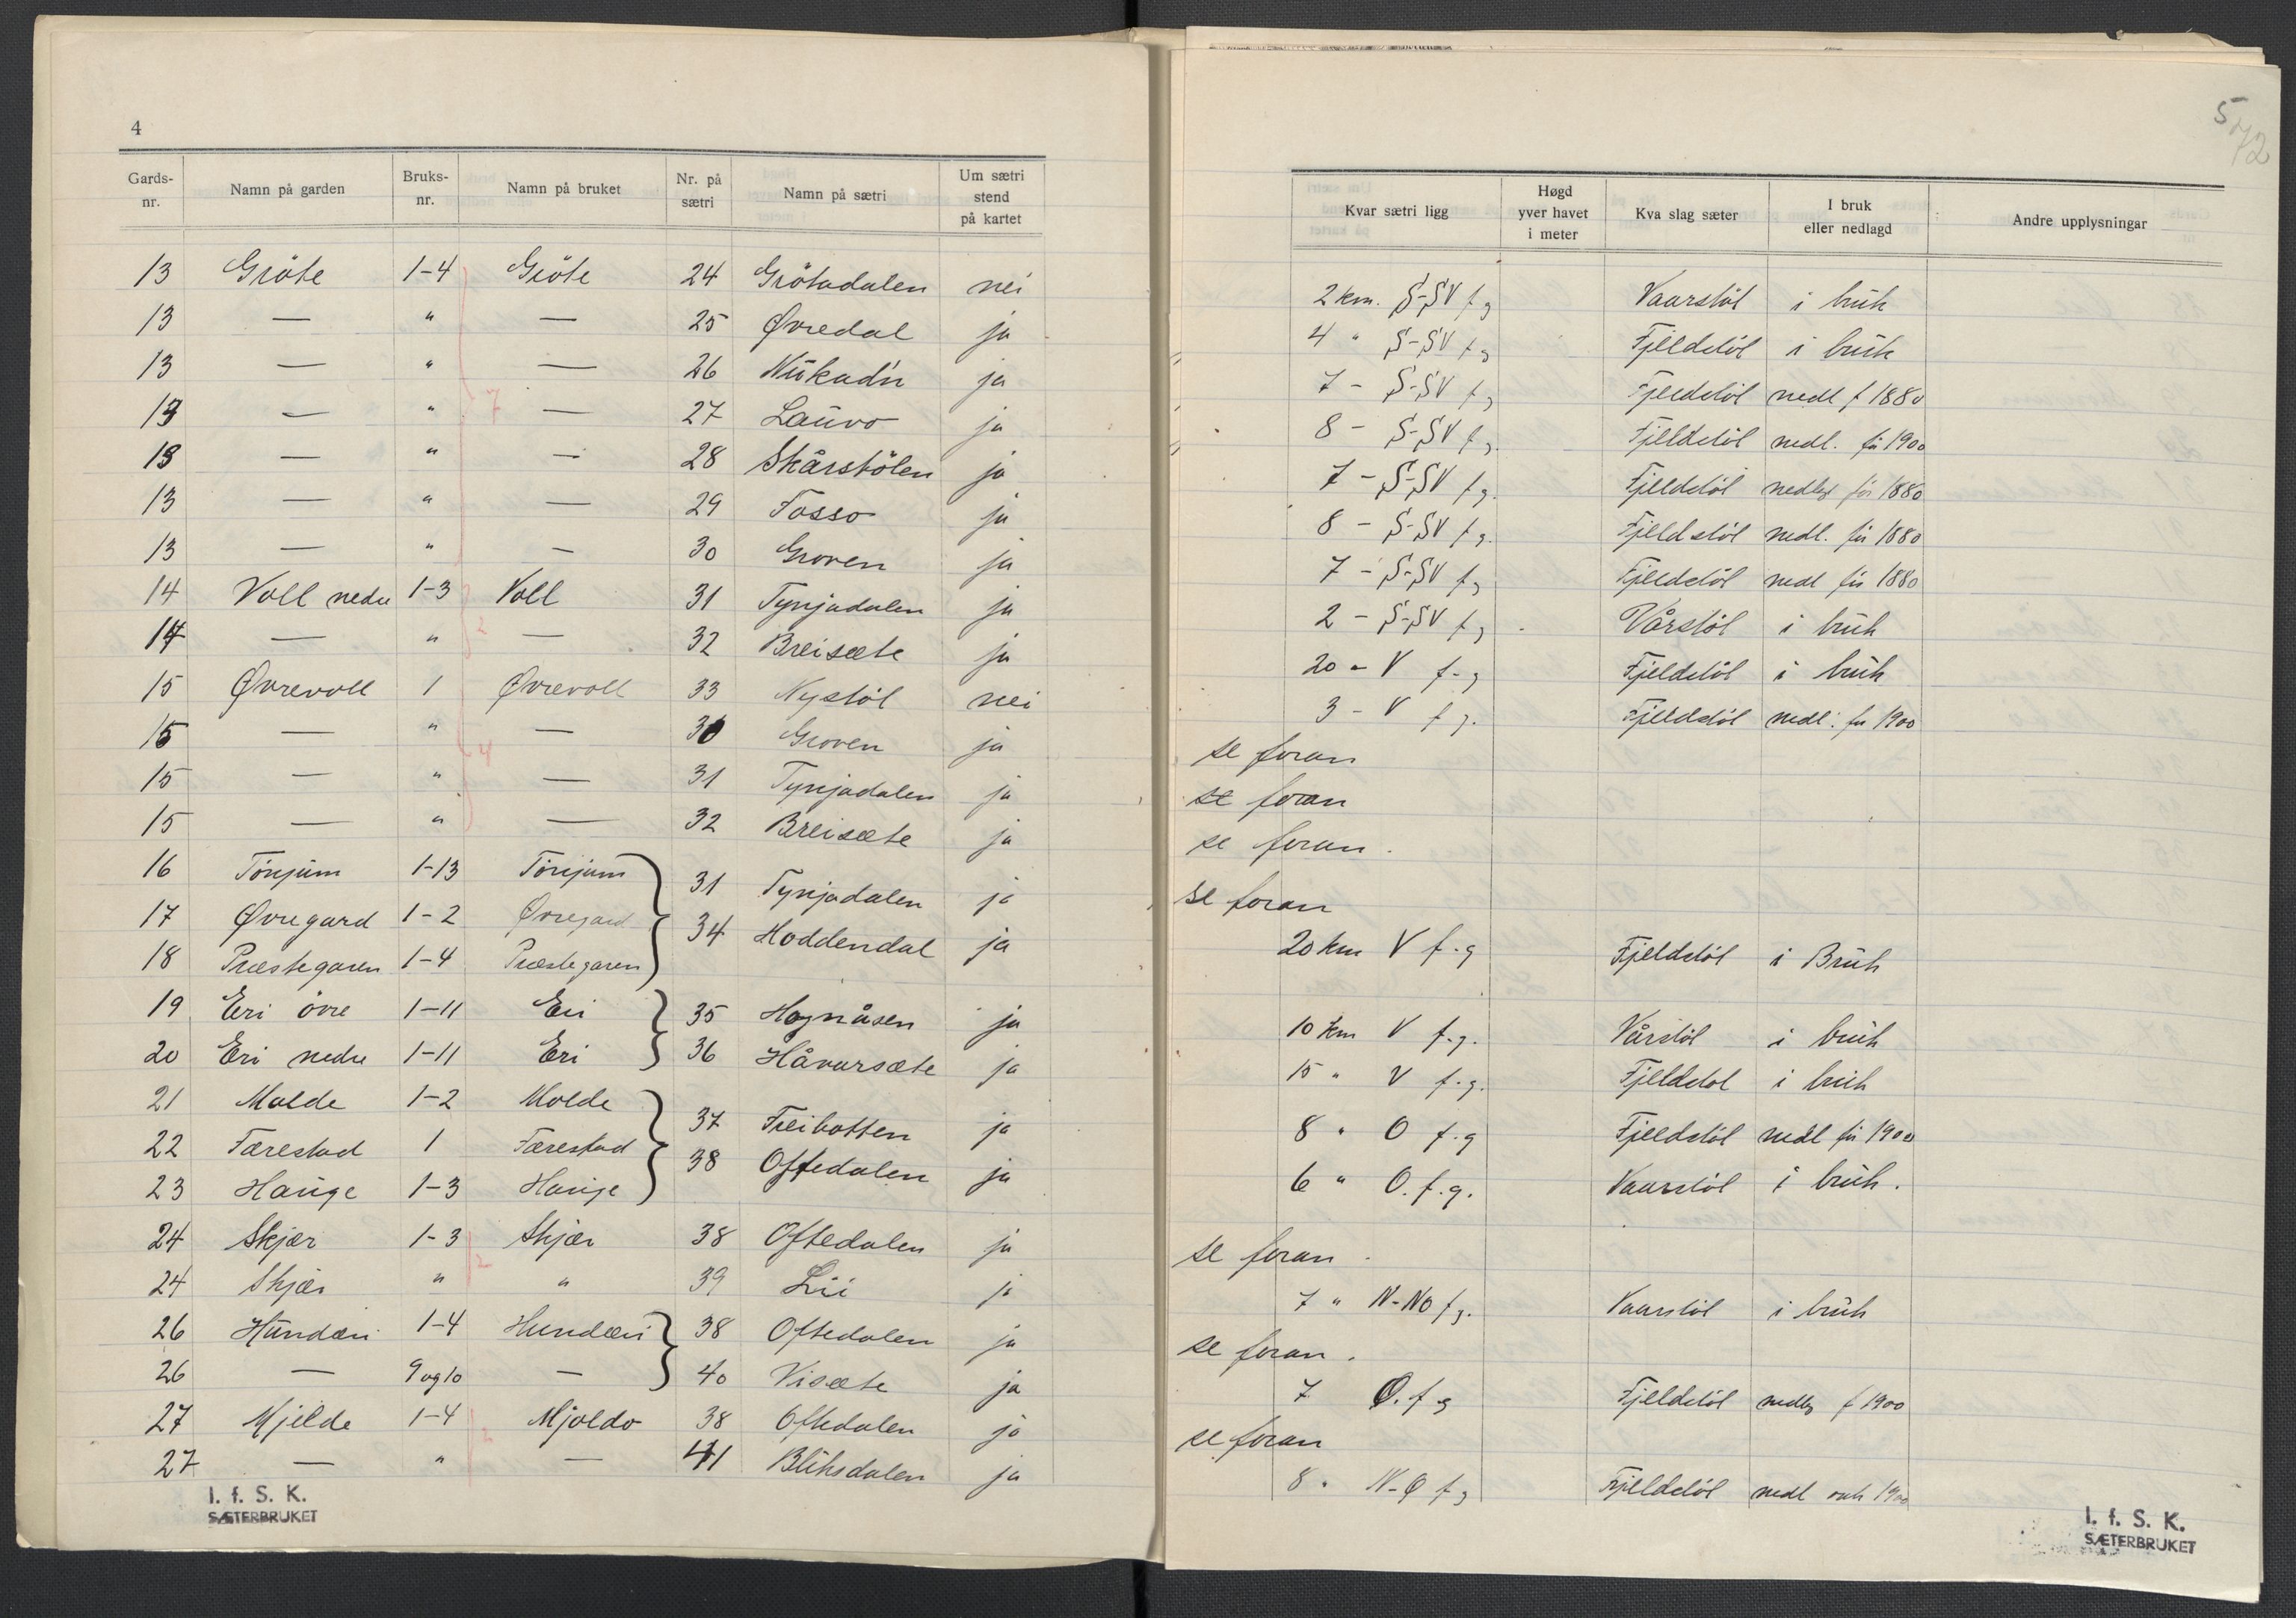 4
Gards-nr. Namn på garden Bruks-nr. Namn på bruket Nr. på sætri Namn på sætri Um sætri stend på kartet
13 Gröte 1-4 Gröte 24 Grötadalen nei
13 — " — 25 Øvredal ja
13 — " — 26 Nükad'n ja
13 — " — 27 Laüvo ja
13 — " — 28 Skårstölen ja
13 — " — 29 Fosso ja
13 — " — 30 Groven ja
14 Voll nedre 1-3 Voll 31 Tynjadalen ja
14 — " — 32 Breisæte ja
15 Øvrevoll 1 Øvrevoll 33 Nystöl nei
15 — " — 30 Groven ja
15 — " — 31 Tynjadalen ja
15 — " — 32 Breisæte ja
16 Tönjüm 1-13 Tönjüm 31 Tynjadalen ja
17 Øvregard 1-2 Øvregard 34 Hoddendal ja
18 Præstegaren 1-4 Præstegaren
19 Eri övre 1-11 Eri 35 Hognåsen ja
20 Eri nedre 1-11 Eri 36 Håvarsæte ja
21 Molde 1-2 Molde 37 Freibotten ja
22 Færestad 1 Færestad 38 Oftedalen ja
23 Haüge 1-3 Haüge
24 Skjær 1-3 Skjær 38 Oftedalen ja
24 Skjær " " 39 Lii ja
26 Hündæri 1-4 Hundæri 38 Oftedalen ja
26 — 9 og 10 — 40 Visæte ja
27 Mjelde 1-4 Mjoldo 38 Oftedalen ja
27 — " — 41 Bliksdalen ja
7
2
4
2
2
I. f. S. K.
SÆTERBRUKET
5
72
Kvar sætri ligg Høgd yver havet i meter Kva slag sæter I bruk eller nedlagd Andre upplysningar
2 km. S-SV f g Vaarstöl i brük
4 " S-SV f g Fjeldstöl i brük
7 - S-SV f g Fjeldstöl nedl f 1880
8 - S-SV f g. Fjeldstöl nedl. før 1900
7 - S-SV f g. Fjeldstöl nedlagt før 1880
8 - S-SV f g. Fjeldstöl nedl. før 1880
7 - S-SV f g Fjeldstöl nedl før 1880
2 - S-SV f g Vårstöl i brük
20 - V f-g Fjeldstöl i brük
3 - V f g. Fjeldstöl nedl. før 1900
se foran
se foran
se foran.
se foran
20 km V f.g Fjeldstöl i Brük
10 km V f.g. Vårstöl i brük
15 " V f.g. Fjeldstöl i brük
8 " O f.g Fjeldstöl nedl før 1900
6 " O. f.g. Vaarstöl i brük.
se foran.
7 " N-NO f g. Vaarstöl i brük
se foran.
7 Ø. f g Fjeldstöl nedlg f 1900
se foran
8 " N-Ø f g Fjeldstöl nedl 1900
I. f. S. K.
SÆTERBRUKET